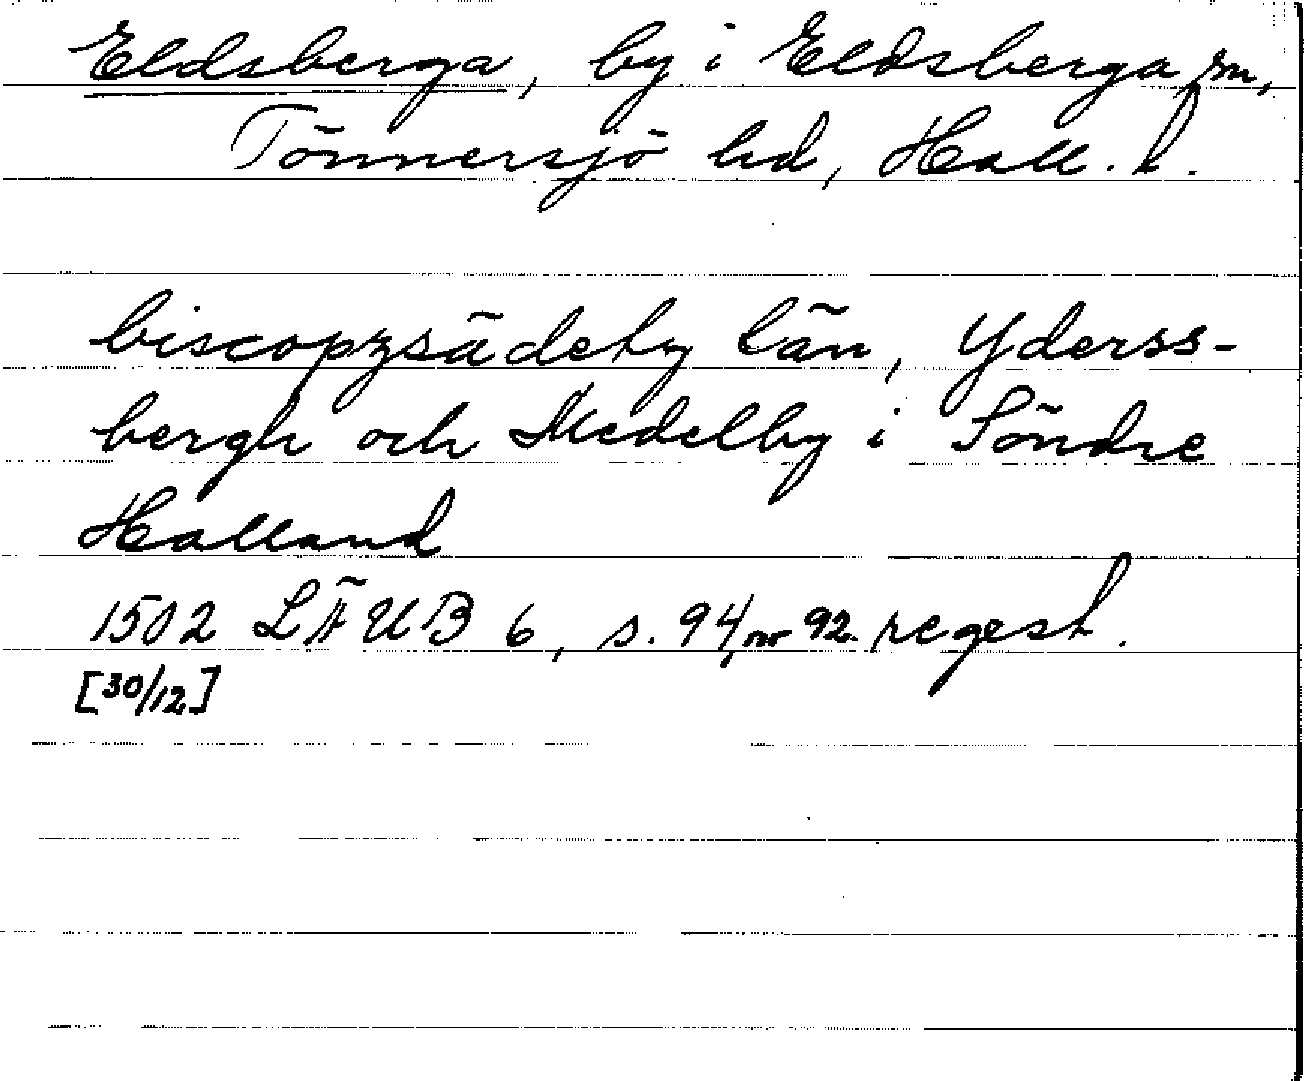 Eldsberga, by i Eldsberga sn,
Tönnersjö hd, Hall. l.
biscopzsädeby län, Yderss-
bergh och Medelby i Söndre
Halland
1502 LÄUB 6, s. 94, nr 92. regest.
[30/12]